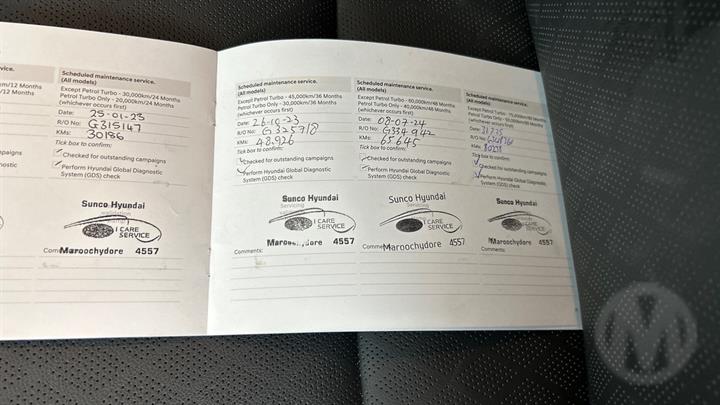 vice.
km/12 Months
/12 Months
mpaigns
nostic
Scheduled maintenance service.
(All models)
Except Petrol Turbo - 30,000km/24 Months
Petrol Turbo Only - 20,000km/24 Months
(whichever occurs first)
Date: 25-01-23
R/O No: G315147
KMs: 30186
Tick box to confirm:
Checked for outstanding campaigns
Perform Hyundai Global Diagnostic
System (GDS) check
Sunco Hyundai
I CARE
SERVICE
Maroochydore 4557
Scheduled maintenance service.
(All models)
Except Petrol Turbo - 45,000km/36 Months
Petrol Turbo Only - 30,000km/36 Months
(whichever occurs first)
Date: 26-10-23
R/O No: G325718
KMs: 48,926
Tick box to confirm:
Checked for outstanding campaigns
Perform Hyundai Global Diagnostic
System (GDS) check
Sunco Hyundai
Servicing
I CARE
SERVICE
Maroochydore 4557
Comments:
Scheduled maintenance service.
(All models)
Except Petrol Turbo - 60,000km/48 Months
Petrol Turbo Only - 40,000km/48 Months
(whichever occurs first)
Date: 08-07-24
R/O No: G334942
KMs: 65645
Tick box to confirm:
Checked for outstanding campaigns
Perform Hyundai Global Diagnostic
System (GDS) check
Sunco Hyundai
I CARE
SERVICE
Maroochydore 4557
Scheduled maintenance service.
(All models)
Except Petrol Turbo - 75,000km/60 Months
Petrol Turbo Only - 50,000km/60 Months
(whichever occurs first)
Date:
R/O No:
KMs:
Tick box to confirm:
Checked for outstanding campaigns
Perform Hyundai Global Diagnostic
System (GDS) check
Sunco Hyundai
Servicing
I CARE
SERVICE
Maroochydore 4557
Comments:
M